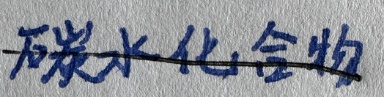 碳水化合物